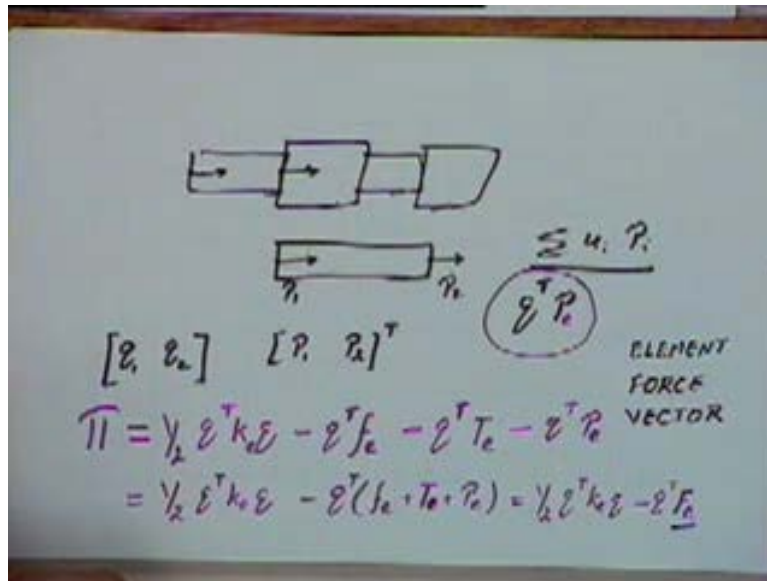 Σ u_i P_i
P_1 P_2
q^T P_e
[q_1 q_2] [P_1 P_2]^T
ELEMENT
FORCE
VECTOR
Π = 1/2 q^T k_e q - q^T f_e - q^T T_e - q^T P_e
= 1/2 q^T k_e q - q^T (f_e + T_e + P_e) = 1/2 q^T k_e q - q^T F_e